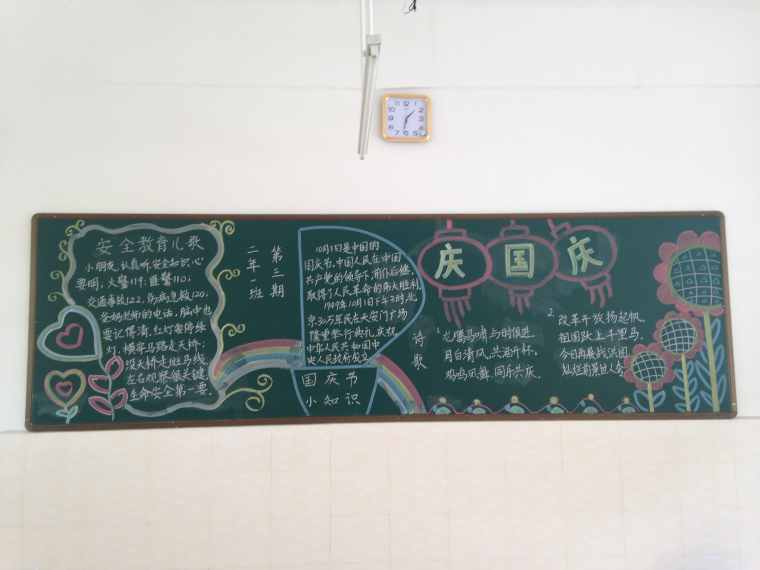 安全教育儿歌
小朋友,认真听,安全知识心
要明,火警119,匪警110;
交通事故122,伤病急救120,
爸妈老师的电话,脑中也
要记得清,红灯要停绿
灯,横穿马路走天桥;
没天桥走斑马线,
左右观察很关键,
生命安全第一要。
二年一班
第三期
10月1日是中国的
国庆节,中国人民在中国
共产党的领导下,前仆后继,
取得了人民革命的伟大胜利
1949年10月1日下午3时,北
京30万军民在天安门广场
隆重举行典礼,庆祝
中华人民共和国中
央人民政府成立
国庆节
小知识
庆国庆
诗歌
1、龙腾马啸与时俱进。
月白清风,共迎开杯。
鸡鸣凤舞,同乐共庆。
2、改革开放扬起帆,
祖国跃上千里马,
今日再